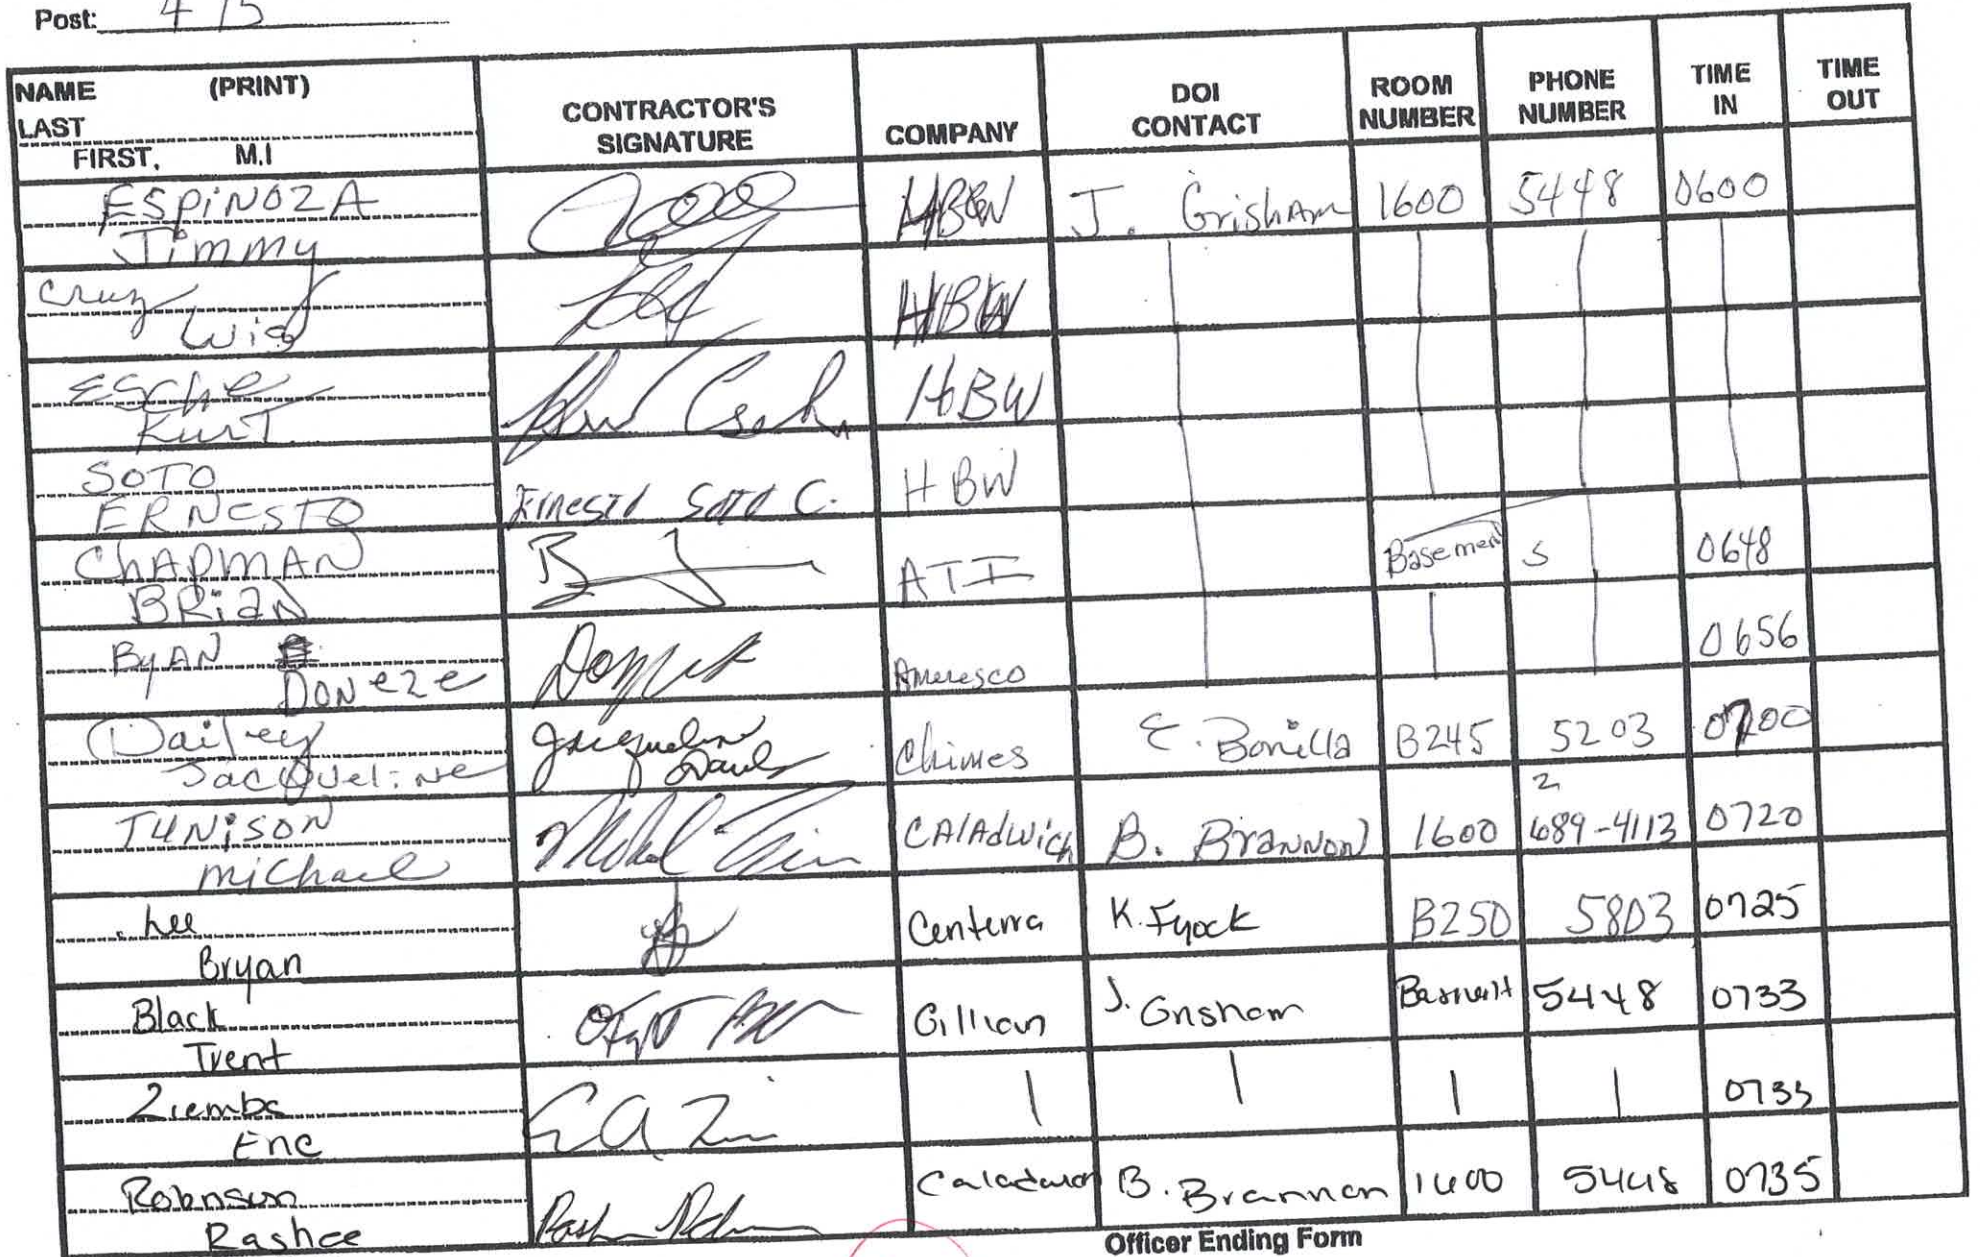 Post: 4 13
NAME (PRINT)
LAST
FIRST, M.I
CONTRACTOR'S
SIGNATURE
COMPANY
DOI
CONTACT
ROOM
NUMBER
PHONE
NUMBER
TIME
IN
TIME
OUT
ESPINOZA
Jimmy
HBW J. Grisham 1600 5448 0600
Cruz
Luis
HBW
Esche
Kurt
HBW
SOTO
ERNESTO
Ernesto Soto C. HBW
CHAPMAN
BRIAN
ATI Basement 5 0648
ByAN
DONeze
Ameresco 0656
Dailey
Jacqueline
Jacqueline
Chimes E. Bonilla B245 5203 0700
TUNISON
michael
CALAdwich B. BRANNON 1600 2
689-4113 0720
Lee
Bryan
Centerra K. Fyock B250 5803 0725
Black
Trent
Gillian J. Grisham Basement 5448 0733
Ziemba
Eric
0733
Robinson
Rashee
B. Brannon 1600 5448 0735
Officer Ending Form